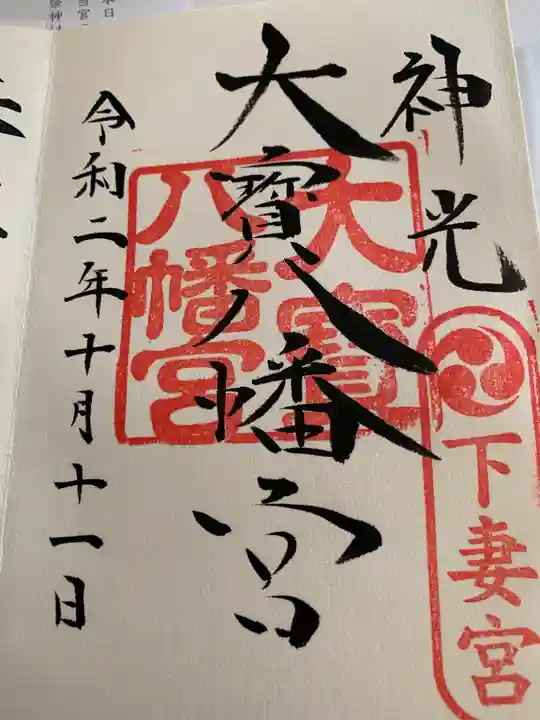 神光
下妻宮
大寳八幡宮
大寳
八幡宮
令和二年十月十一日